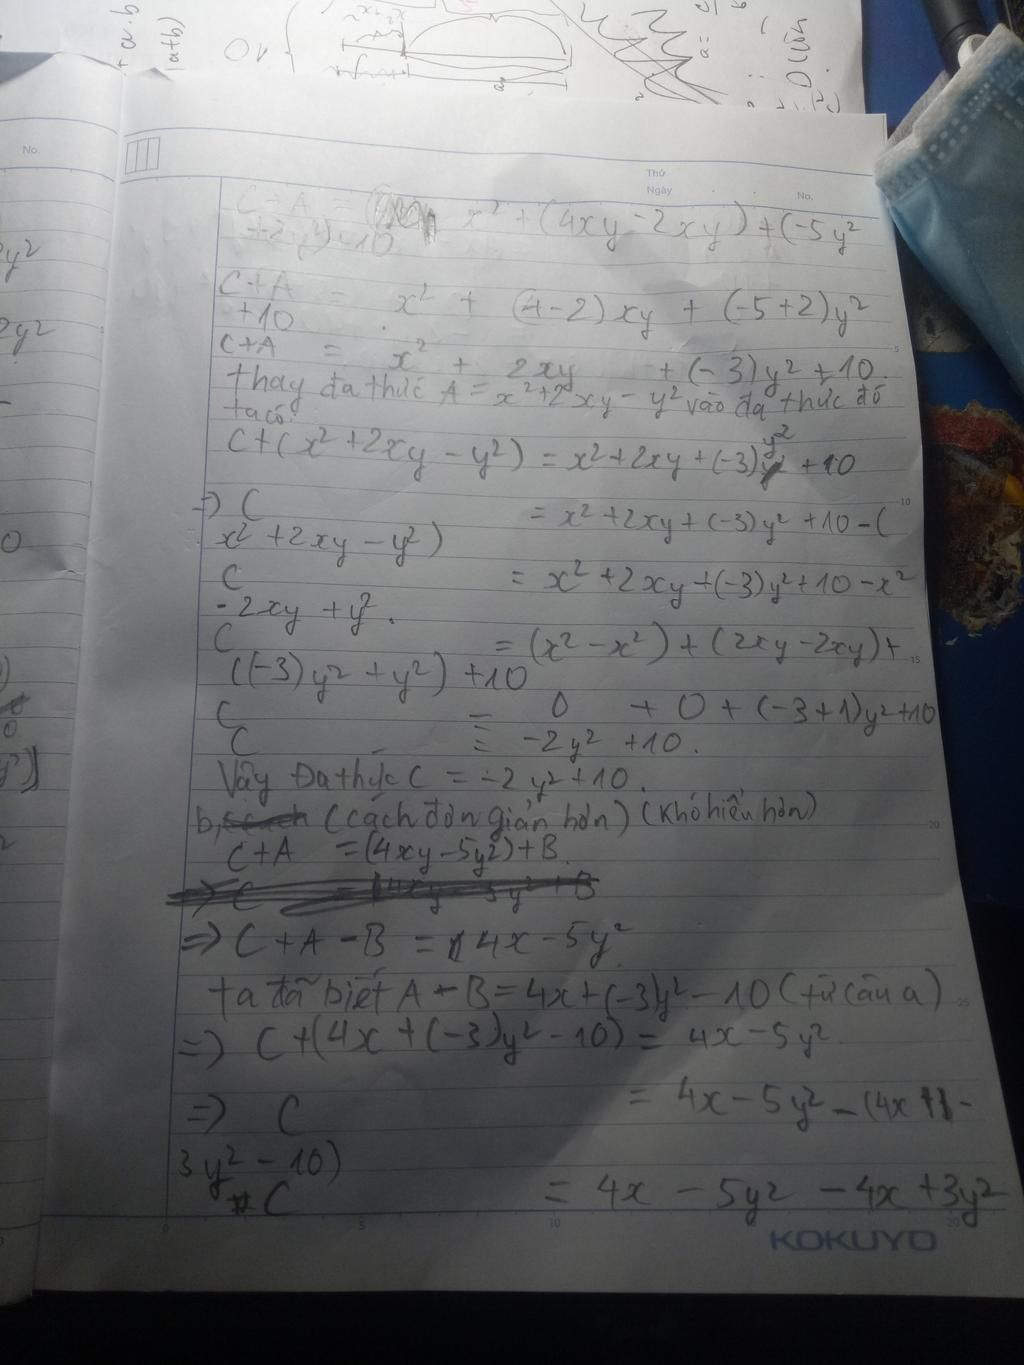 + a.b
(a+b)
10
a =
No.
Thứ
Ngày
No.
C+A = x² + (4xy - 2xy) + (-5y²
+2y²)+10
C+A = x² + (4-2)xy + (-5+2)y²
+10
C+A = x² + 2xy + (-3)y² + 10.
thay đa thức A = x²+2xy - y² vào đa thức đó
ta có:
C+(x²+2xy-y²) = x²+2xy+(-3)y² +10
=> C = x²+2xy+(-3)y² +10-(
x²+2xy-y²)
C = x²+2xy+(-3)y²+10-x²
-2xy+y².
C = (x²-x²)+(2xy-2xy)+
((-3)y²+y²)+10
C = 0 + 0 + (-3+1)y²+10
C = -2y²+10.
Vậy Đa thức C = -2y²+10.
b, (cách đơn giản hơn) (khó hiểu hơn)
C+A = (4xy-5y²)+B.
=> C+A-B = 4x-5y²
ta đã biết A-B=4x+(-3)y²-10 (từ câu a)
=> C+(4x+(-3)y²-10) = 4x-5y²
=> C = 4x-5y²-(4x-
3y²-10)
C = 4x - 5y² - 4x + 3y²
5
10
15
20
25
0
5
10
20
KOKUYO
y²
2y²
0
0
y²)]